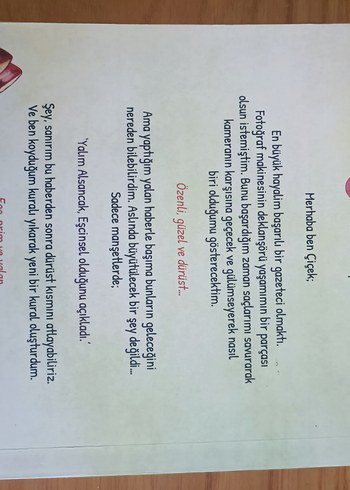 Merhaba ben Çiçek;
En büyük hayalim başarılı bir gazeteci olmaktı.
Fotoğraf makinesinin deklanşörü yaşamımın bir parçası
olsun istemiştim. Bunu başardığım zaman saçlarımı savurarak
kameranın karşısına geçecek ve gülümseyerek nasıl
biri olduğumu gösterecektim.
Özenli, güzel ve dürüst...
Ama yaptığım yalan haberle başıma bunların geleceğini
nereden bilebilirdim. Aslında büyütülecek bir şey değildi...
Sadece manşetlerde;
'Yalım Alsancak, Eşcinsel olduğunu açıkladı.'
Şey, sanırım bu haberden sonra dürüst kısmını atlayabiliriz.
Ve ben koyduğum kuralı yıkarak yeni bir kural oluşturdum.